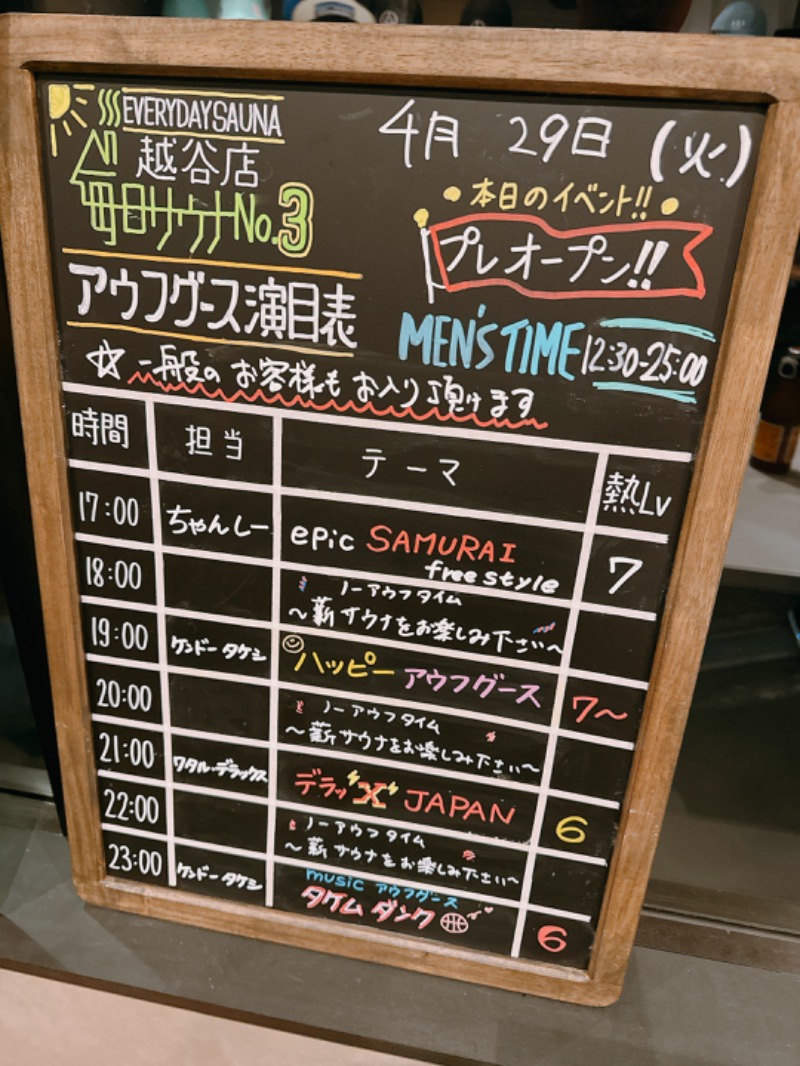 EVERYDAY SAUNA
越谷店
毎日サウナNo.3
アウフグース演目表
4月 29日 (火)
本日のイベント!!
プレオープン!!
MEN'S TIME 12:30-25:00
☆一般のお客様もお入り頂けます
時間 担当 テーマ 熱Lv
17:00 ちゃんしー epic SAMURAI 7
free style
18:00 ノーアウフタイム
〜薪サウナをお楽しみ下さい〜
19:00 ケンドータケシ ハッピー アウフグース 7〜
20:00 ノーアウフタイム
〜薪サウナをお楽しみ下さい〜
21:00 ワタル・デラックス デラッ"X" JAPAN 6
22:00 ノーアウフタイム
〜薪サウナをお楽しみ下さい〜
23:00 ケンドータケシ music アウフグース
タケム ダンク 6